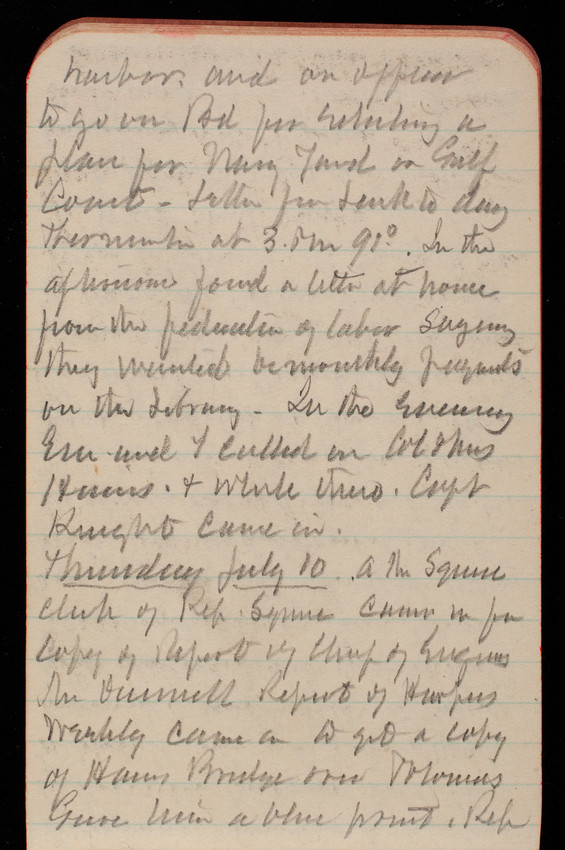 harbor, and an officer
to go on Bd for selecting a
plan for Navy Yard on Gulf
Coast - Letter from Senk to day
Thermometer at 3. PM 91°. In the
afternoon found a letter at home
from the federation of labor saying
they wanted bi monthly payments
on the Library - In the evening
Em and I called on Col & Mrs
Hains. & while there. Capt
Knight came in.
Thursday July 10. a Mr Squire
clerk of Rep. Squire came in for
copy of Report of Chief of Engrs
Mr Report of Harpers
Weekly came in to get a copy
of Hains Bridge over Potomac
Gave him a blue print. Rep